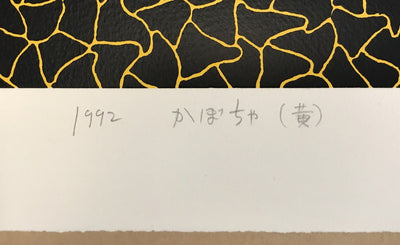 1992 かぼちゃ (黄)